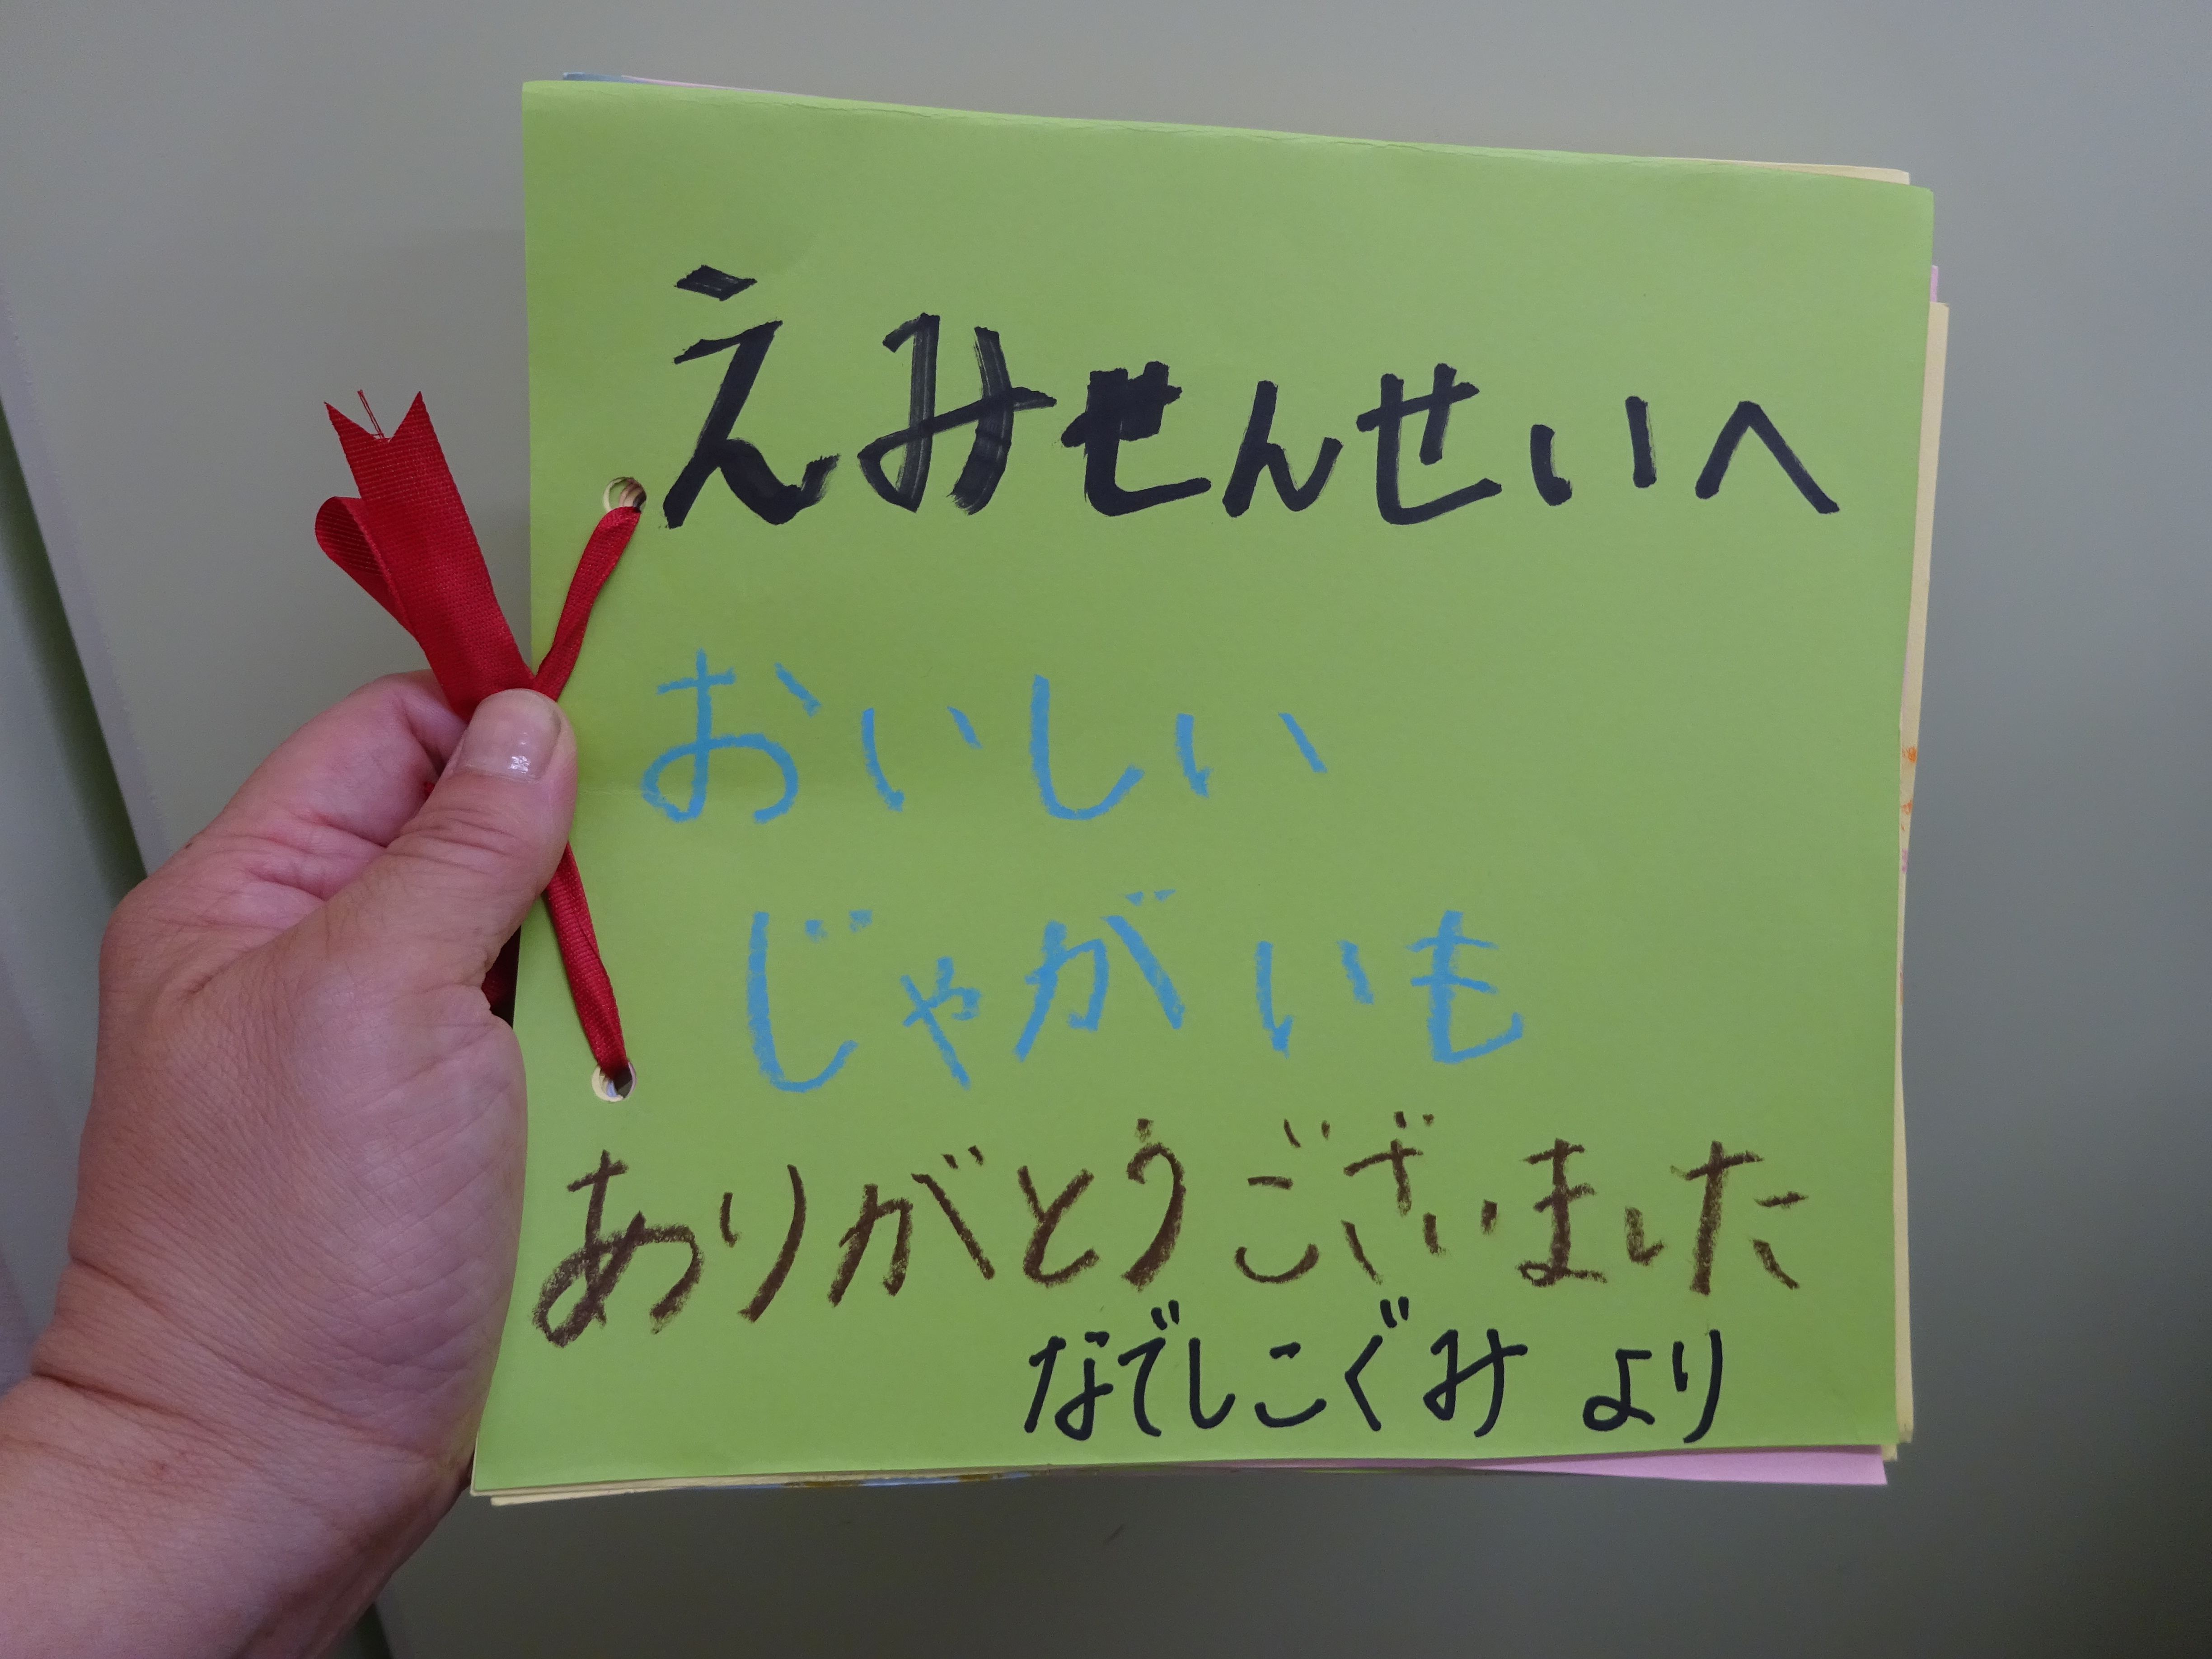 えみせんせいへ
おいしい
じゃがいも
ありがとうございました
なでしこぐみ より